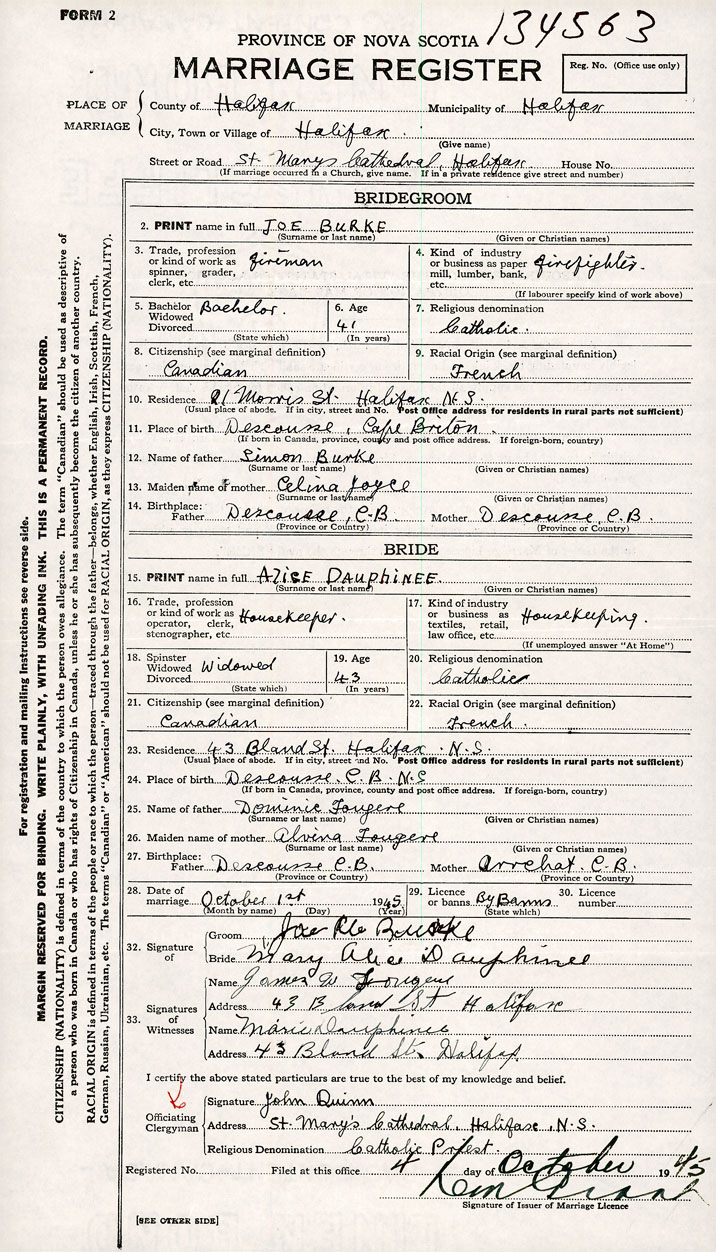 FORM 2
134563
PROVINCE OF NOVA SCOTIA
MARRIAGE REGISTER
Reg. No. (Office use only)
PLACE OF MARRIAGE
County of Halifax Municipality of Halifax
City, Town or Village of Halifax
(Give name)
Street or Road St. Mary's Cathedral, Halifax House No.
(If marriage occurred in a Church, give name. If in a private residence give street and number)
BRIDEGROOM
2. PRINT name in full JOE BURKE
(Surname or last name) (Given or Christian names)
3. Trade, profession or kind of work as spinner, grader, clerk, etc. fireman
4. Kind of industry or business as paper mill, lumber, bank, etc. firefighter.
(If labourer specify kind of work above)
5. Bachelor Widowed Divorced Bachelor.
(State which)
6. Age 41
(In years)
7. Religious denomination
Catholic.
8. Citizenship (see marginal definition)
Canadian
9. Racial Origin (see marginal definition)
French
10. Residence 21 Morris St. Halifax N.S.
(Usual place of abode. If in city, street and No. Post Office address for residents in rural parts not sufficient)
11. Place of birth Descousse, Cape Briton.
(If born in Canada, province, county and post office address. If foreign-born, country)
12. Name of father Simon Burke
(Surname or last name) (Given or Christian names)
13. Maiden name of mother Celina Joyce
(Surname or last name) (Given or Christian names)
14. Birthplace: Father Descousse, C.B. Mother Descousse, C.B.
(Province or Country) (Province or Country)
BRIDE
15. PRINT name in full ALICE DAUPHINEE.
(Surname or last name) (Given or Christian names)
16. Trade, profession or kind of work as operator, clerk, stenographer, etc. Housekeeper.
17. Kind of industry or business as textiles, retail, law office, etc. Housekeeping.
(If unemployed answer "At Home")
18. Spinster Widowed Divorced Widowed
(State which)
19. Age 43
(In years)
20. Religious denomination
Catholic
21. Citizenship (see marginal definition)
Canadian
22. Racial Origin (see marginal definition)
French.
23. Residence 43 Bland St. Halifax. N.S.
(Usual place of abode. If in city, street and No. Post Office address for residents in rural parts not sufficient)
24. Place of birth Descousse. C.B. N.S
(If born in Canada, province, county and post office address. If foreign-born, country)
25. Name of father Dominic Fougere
(Surname or last name) (Given or Christian names)
26. Maiden name of mother Alvina Fougere
(Surname or last name) (Given or Christian names)
27. Birthplace: Father Descousse C.B. Mother Arrchat. C.B.
(Province or Country) (Province or Country)
28. Date of marriage October 1st 1945
(Month by name) (Day) (Year)
29. Licence or banns By Banns
(State which)
30. Licence number
32. Signature of
Groom Joe Burke
Bride Mary Alice Dauphinee
33. Signatures of Witnesses
Name James W Fougere
Address 43 Bland St Halifax
Name Marie Dauphinee
Address 43 Bland St. Halifax
I certify the above stated particulars are true to the best of my knowledge and belief.
Officiating Clergyman
Signature John Quinn
Address St. Mary's Cathedral, Halifax, N.S.
Religious Denomination Catholic Priest.
Registered No. Filed at this office 4 day of October 1945
Signature of Issuer of Marriage Licence
[SEE OTHER SIDE]
For registration and mailing instructions see reverse side.
MARGIN RESERVED FOR BINDING. WRITE PLAINLY, WITH UNFADING INK. THIS IS A PERMANENT RECORD.
CITIZENSHIP (NATIONALITY) is defined in terms of the country to which the person owes allegiance. The term "Canadian" should be used as descriptive of
a person who was born in Canada or who has rights of Citizenship in Canada, unless he or she has subsequently become the citizen of another country.
RACIAL ORIGIN is defined in terms of the people or race to which the person—traced through the father—belongs, whether English, Irish, Scottish, French,
German, Russian, Ukrainian, etc. The terms "Canadian" or "American" should not be used for RACIAL ORIGIN, as they express CITIZENSHIP (NATIONALITY).